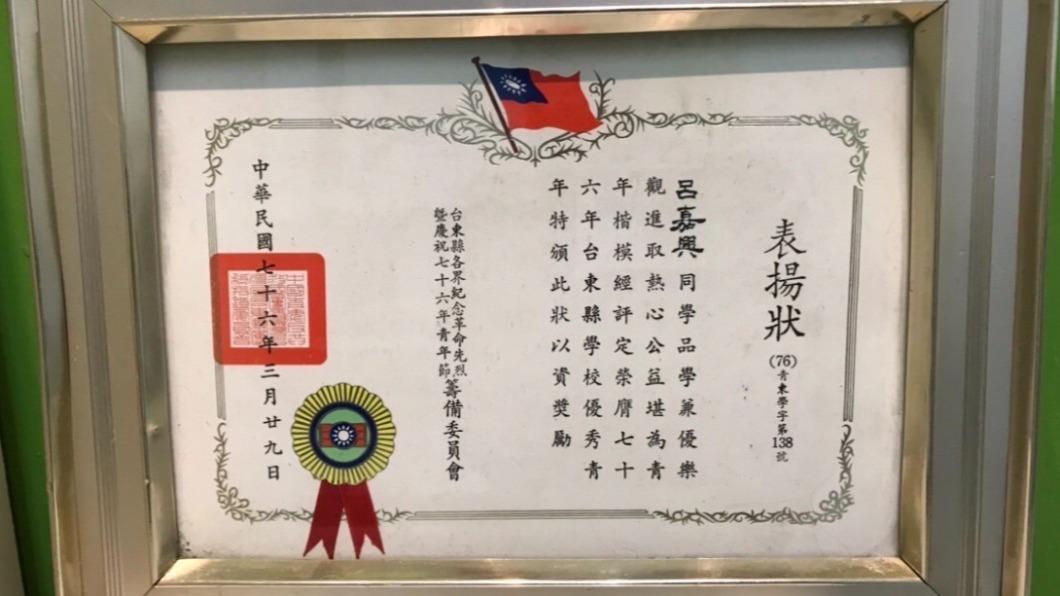 表揚狀
(76)青東學字第138號
呂嘉興同學品學兼優樂
觀進取熱心公益堪為青
年楷模經評定榮膺七十
六年台東縣學校優秀青
年特頒此狀以資獎勵
台東縣各界紀念革命先烈
暨慶祝七十六年青年節籌備委員會
中華民國七十六年三月廿九日